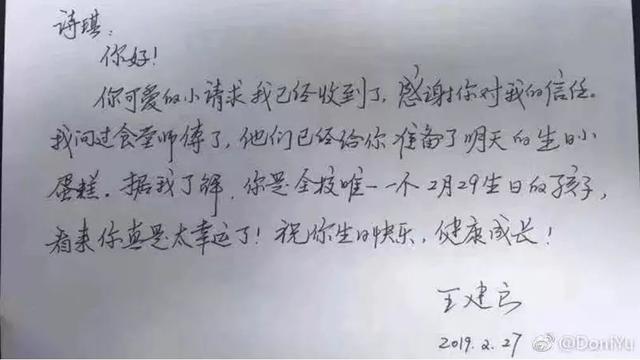 诗琪:
你好!
你可爱的小请求我已经收到了,感谢你对我的信任。
我问过食堂师傅了,他们已经给你准备了明天的生日小
蛋糕。据我了解,你是全校唯一一个2月29生日的孩子,
看来你真是太幸运了!祝你生日快乐,健康成长!
王建
2019.2.27
@DoniYu